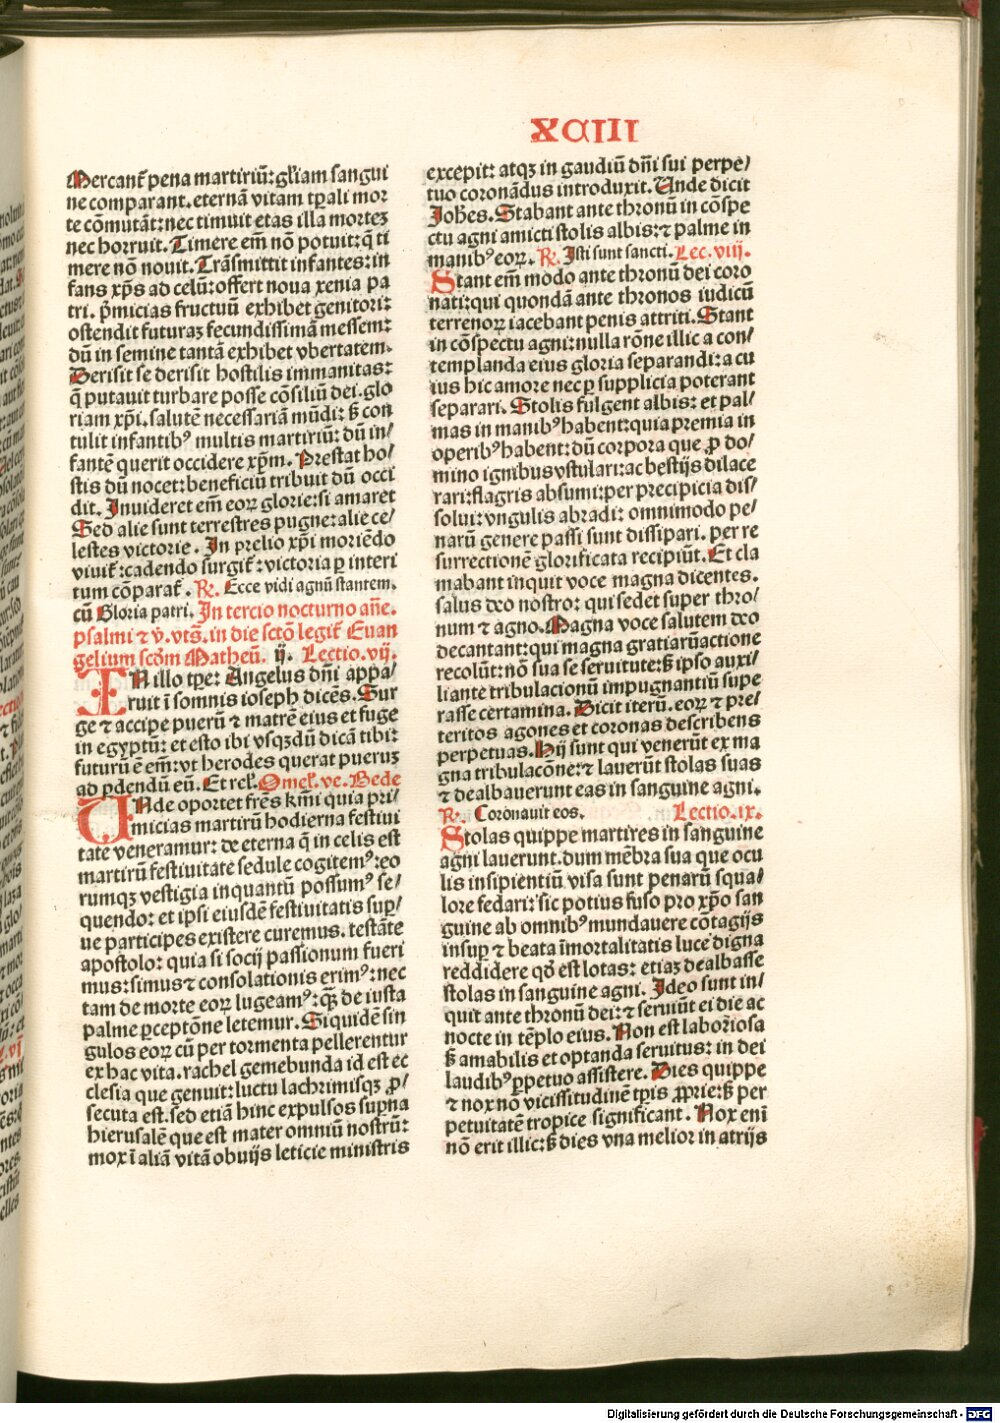 XCIIII
Mercant᷑ pena martiriū: gl̄iam sangui
ne comparant. eternā vitam tp̄ali mor
te cōmutāt: nec timuit etas illa mortez
nec horruit. Timere em̄ nō potuit: q̄ ti
mere nō nouit. Trāsmittit infantes: in
fans xp̄s ad celū: offert noua xenia pa
tri. p̄micias fructuū exhibet genitori:
ostendit futuraz fecundissimā messem:
dū in semine tantā exhibet vbertatem.
Derisit se derisit hostilis immanitas:
q̄ putauit turbare posse cōsiliū dei. glo
riam xp̄i. salutē necessariā mūdi: ß con
tulit infantibꝰ multis martiriū: dū in/
fantē querit occidere xp̄m. Prestat ho/
stis dū nocet: beneficiū tribuit dū occi
dit. Inuideret em̄ eoꝝ glorie: si amaret
Sed alie sunt terrestres pugne: alie ce/
lestes victorie. In prelio xp̄i moriēdo
viuit᷑: cadendo surgit᷑: victoria ꝑ interi
tum cōparat᷑. ℟. Ecce vidi agnū stantem.
cū Gloria patri. In tercio nocturno an̄e.
psalmi ⁊ v̄. vts̄. in die sctō legit᷑ Euan
gelium scd̄m Matheū. ij. Lectio. vij.
IN illo tp̄e: Angelus dn̄i appa/
ruit ī somnis ioseph dicēs. Sur
ge ⁊ accipe puerū ⁊ matrē eius et fuge
in egyptū: et esto ibi vsqꝫdū dicā tibi:
futurū ē em̄: vt herodes querat pueruz
ad ꝑdendū eū. Et rel᷑. Omel᷑. ve. Bede
UNde oportet fr̄es km̄i quia pri/
micias martirū hodierna festiui
tate veneramur: de eterna q̄ in celis est
martirū festiuitate sedule cogitemꝰ: eo
rumqꝫ vestigia inquantū possumꝰ se/
quendo: et ipsi eiusdē festiuitatis suꝑ/
ue participes existere curemus. testāte
apostolo: quia si socij passionum fueri
mus: simus ⁊ consolationis erimꝰ: nec
tam de morte eoꝝ lugeamꝰ: qꝫ̄ de iusta
palme ꝑceptōne letemur. Siquidē sin
gulos eoꝝ cū per tormenta pellerentur
ex hac vita. rachel gemebunda id est ec
clesia que genuit: luctu lachrimisqꝫ ꝓ/
secuta est. sed etiā hinc expulsos suꝑna
hierusalē que est mater omniū nostrū:
mox ī aliā vitā obuijs leticie ministris
excepit: atqꝫ in gaudiū dn̄i sui perpe/
tuo coronādus introduxit. Unde dicit
Joh̄es. Stabant ante thronū in cōspe
ctu agni amicti stolis albis: ⁊ palme in
manibꝰ eoꝝ. ℟. Isti sunt sancti. Lec. viij.
Stant em̄ modo ante thronū dei coro
nati: qui quondā ante thronos iudicū
terrenoꝝ iacebant penis attriti. Stant
in cōspectu agni: nulla rōne illic a con/
templanda eius gloria separandi: a cu
ius hic amore nec ꝑ supplicia poterant
separari. Stolis fulgent albis: et pal/
mas in manibꝰ habent: quia premia in
operibꝰ habent: dū corpora que ꝓ do/
mino ignibus vstulari: ac bestijs dilace
rari: flagris absumi: per precipicia dis/
solui: vngulis abradi: omnimodo pe/
narū genere passi sunt dissipari. per re
surrectionē glorificata recipiūt. Et cla
mabant inquit voce magna dicentes.
salus deo nostro: qui sedet super thro/
num ⁊ agno. Magna voce salutem deo
decantant: qui magna gratiarū actione
recolūt: nō sua se seruitute: ß ipso auxi/
liante tribulacionū impugnantiū supe
rasse certamina. Dicit iterū. eoꝝ ⁊ pre/
teritos agones et coronas describens
perpetuas. Hij sunt qui venerūt ex ma
gna tribulacōne: ⁊ lauerūt stolas suas
⁊ dealbauerunt eas in sanguine agni.
℟. Coronauit eos. Lectio. ix.
Stolas quippe martires in sanguine
agni lauerunt. dum mēbra sua que ocu
lis insipientiū visa sunt penarū squa/
lore fedari: sic potius fuso pro xp̄o san
guine ab omnibꝰ mundauere cōtagijs
insuꝑ ⁊ beata īmortalitatis luce digna
reddidere qd̄ est lotas: etiaz dealbasse
stolas in sanguine agni. Ideo sunt in/
quit ante thronū dei: ⁊ seruiūt ei die ac
nocte in tēplo eius. Non est laboriosa
ß amabilis et optanda seruitus: in dei
laudibꝰ ꝑpetuo assistere. Dies quippe
⁊ nox nō vicissitudinē tp̄is ꝓprie: ß per
petuitatē tropice significant. Nox eni
nō erit illic: ß dies vna melior in atrijs
Digitalisierung gefördert durch die Deutsche Forschungsgemeinschaft - DFG